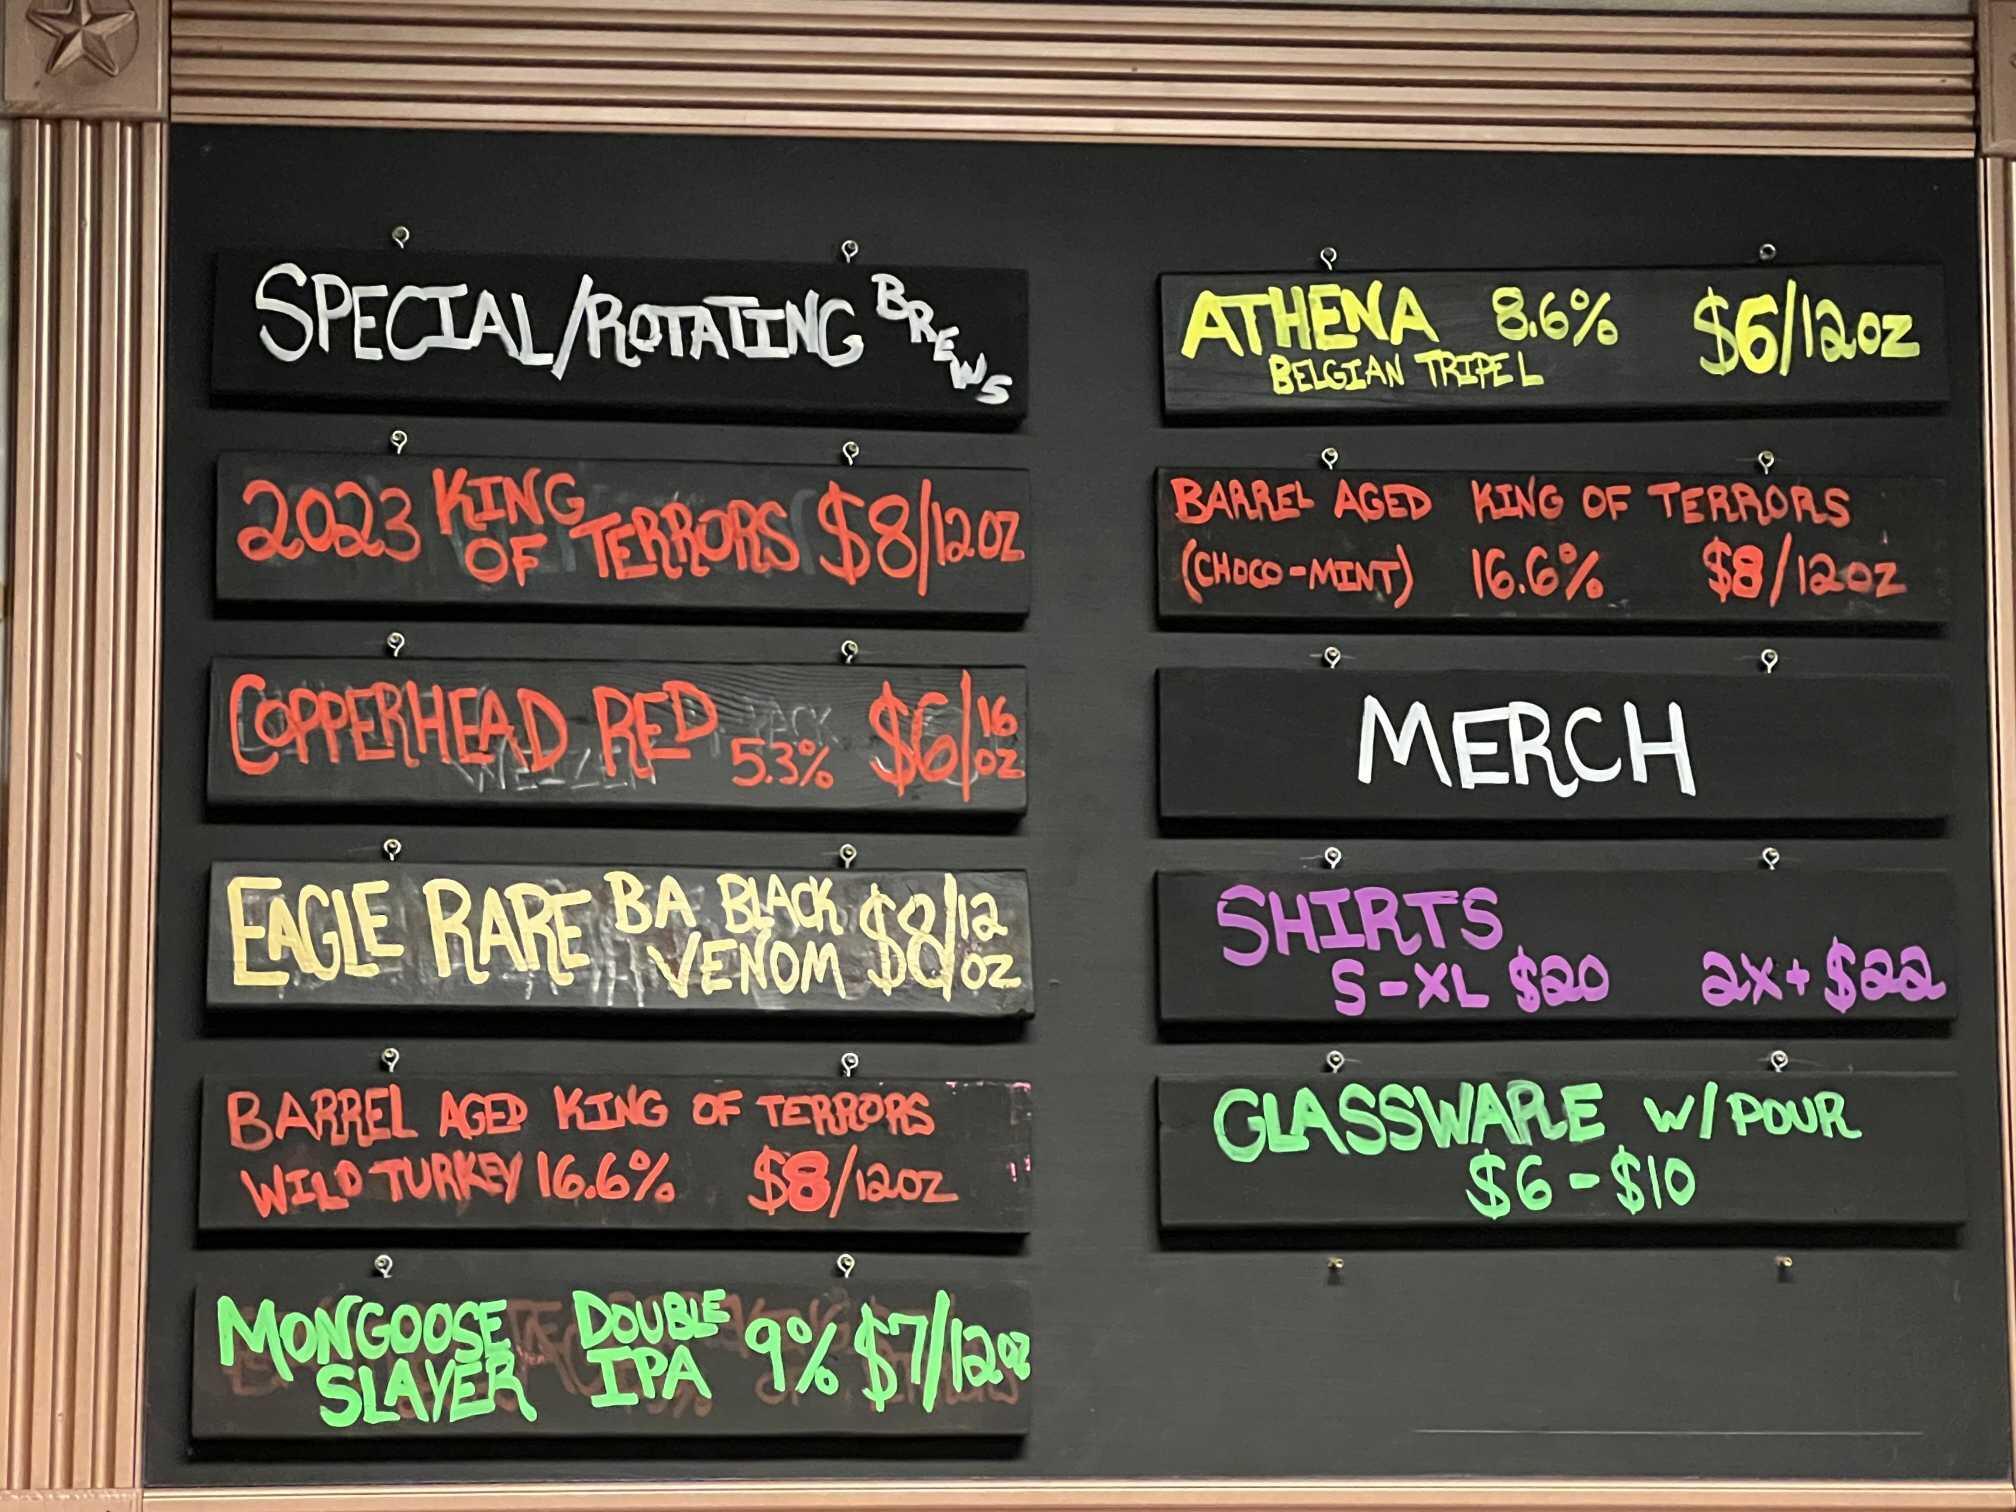 SPECIAL/ROTATING BREWS
2023 KING OF TERRORS $8/12OZ
COPPERHEAD RED 5.3% $6/16 OZ
EAGLE RARE BA BLACK VENOM $8/12 OZ
BARREL AGED KING OF TERRORS
WILD TURKEY 16.6% $8/12OZ
MONGOOSE SLAYER DOUBLE IPA 9% $7/12OZ
ATHENA 8.6% $6/12OZ
BELGIAN TRIPEL
BARREL AGED KING OF TERRORS
(CHOCO-MINT) 16.6% $8/12OZ
MERCH
SHIRTS
S-XL $20 2X+ $22
GLASSWARE W/POUR
$6-$10